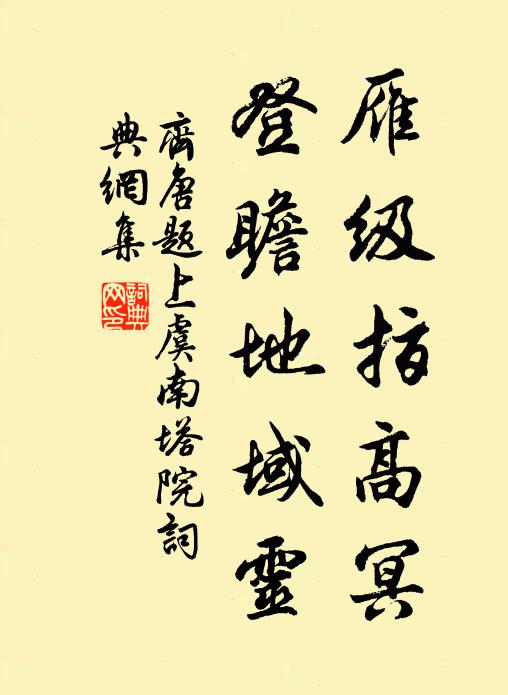 雁级指高冥
登瞻地域靈
齊唐题上虞南塔院詞
典網集
詞典网印